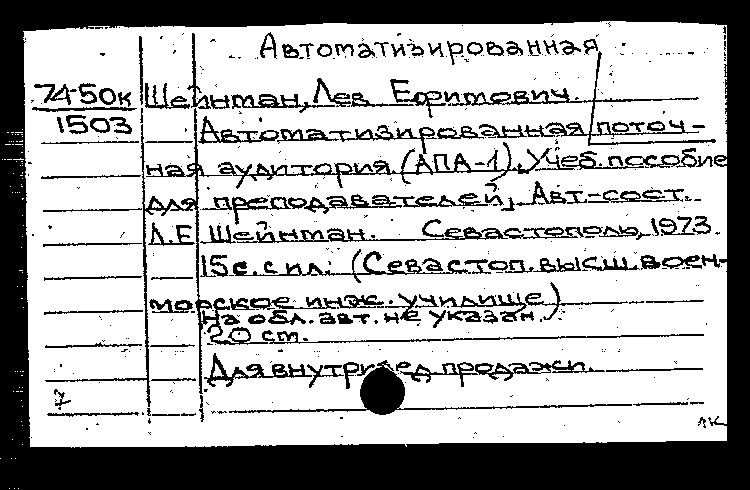 Автоматизированная
74-50к Шейнман, Лев Ефимович.
1503 Автоматизированная поточ-
ная аудитория (АПА-1). Учеб. пособие
для преподавателей, Авт.-сост.
Л.Е Шейнман. Севастополь, 1973.
15 с. с ил. (Севастоп. высш. воен.-
морское инж. училище)
На обл. авт. не указан.
20 см.
Для внутривед продажи.
7